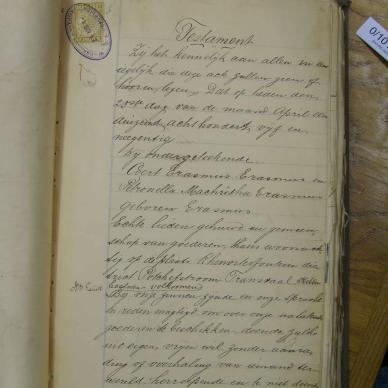 Testament
Zij het kennelijk aan allen en een
iegelijk die deze acte zullen zien of
hooren lezen, Dat op heden den
dag van de maand April een
duizend achthonderd vijf en
negentig
Wij ondergeteekende
Coert Erasmus Erasmus en
Petronella Machritha Erasmus
geboren Erasmus
Echte lieden gehuwd in gemeen
schap van goederen, thans woonach
tig op de plaats Rhenosterfontein dis
trict Potchefstroom Transvaal
volkomend
By onze zinnen zynde en onze spraak
en reden magtig om over onze nalaten
goederen te beschikken, doende zulks
uit eigen vryen wil zonder aanra
ding of overhaling van iemand ter
wereld, herroepende en te niet doen